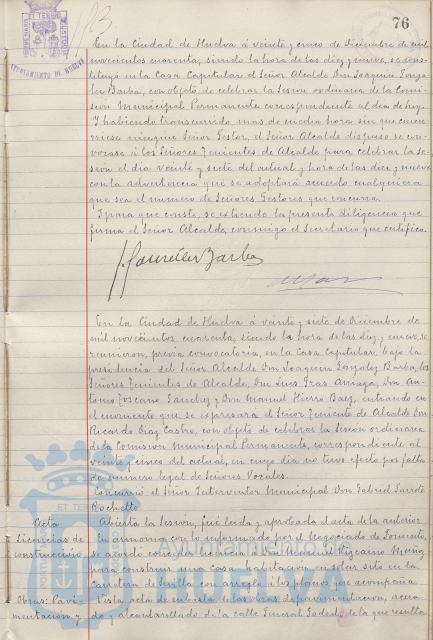 76
AYUNTAMIENTO DE HUELVA
En la Ciudad de Huelva á veinte y cinco de Diciembre de mil
novecientos cuarenta, siendo la hora de las diez y nueve, se cons-
tituyó en la Casa Capitular el Señor Alcalde Don Joaquin Gonza-
lez Barba, con objeto de celebrar la Sesion ordinaria de la Comi-
sion Municipal Permanente correspondiente al dia de hoy.
Y habiendo transcurrido mas de media hora sin que concu-
rriese ningun Señor Gestor, el Señor Alcalde dispuso se con-
vocase á los Señores Tenientes de Alcalde para celebrar la se-
sion el dia veinte y siete del actual y hora de las diez y nueve
con la advertencia que se adoptará acuerdo cualquiera
que sea el numero de Señores Gestores que concurra.
Y para que conste, se extiende la presente diligencia que
firma el Señor Alcalde, conmigo el Secretario que certifico.
En la Ciudad de Huelva á veinte y siete de Diciembre de
mil novecientos cuarenta, siendo la hora de las diez y nueve, se
reunieron, previa convocatoria, en la Casa Capitular, bajo la
presidencia del Señor Alcalde Don Joaquin Gonzalez Barba, los
Señores Tenientes de Alcalde, Don Luis Gras Arnaya, Don An-
tonio Toscano Sanchez y Don Manuel Hierro Baez, entrando en
el momento que se expresará el Señor Teniente de Alcalde Don
Ricardo Diaz Castro, con objeto de celebrar la Sesión ordinaria
de la Comision Municipal Permanente, correspondiente al
veinte y cinco del actual, en cuyo dia no tuvo efecto por falta
de numero legal de Señores Vocales.
Concurrió el Señor Interventor Municipal Don Gabriel
Acta Abierta la Sesion, fué leida y aprobada el acta de la anterior
Licencias de En armonia con lo informado por el Negociado de Fomento,
construccion se acordó conceder licencia á Don Vizcaino Muñiz
para construir una casa habitacion en solar sito en la
Carretera de Sevilla con arreglo á los planos que acompaña
Obras: Pavi- Vista acta de subasta de las obras de pavimentacion, acera-
mentacion y do y alcantarillado de la calle General de la que resulta